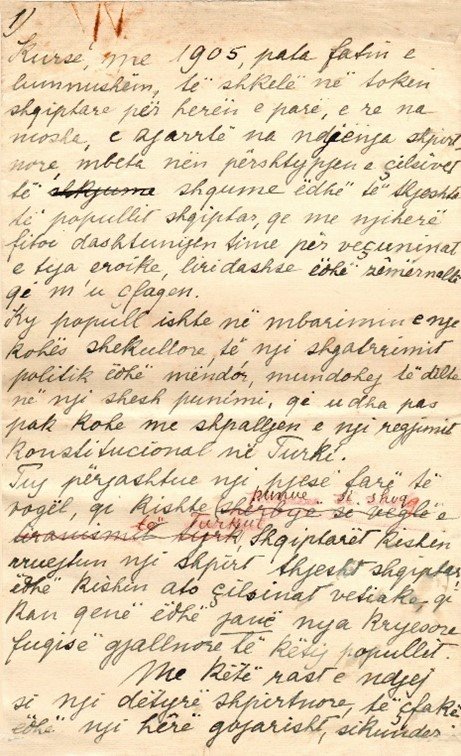 1)
Kurse, me 1905, pata fatin e
lumnushëm, të shkelë në token
shqiptare për herën e parë, e re na
mosha, e zgarrtë na ndjenja shpirt,
nore, mbeta nën përshtypjen e çilsivet
të shkjume shqume ëdhë të thjeshta
të popullit shqiptar, qe me njiherë
fitoi dashtunijen time për veçuninat
e tija eroike, liridashse ëdhë zëmërnalta
që m'u çfaqen.
Ky popull ishte në mbarimin e nje
kohës shekullore, të nji shqatrrimit
politik ëdhë mëndór, mundohej të dilte
në nji shesh punimi, që udha pas
pak kohe me shpalljen e nji regjimit
Konstitucional në Turki.
Tuj përjashtue nji pjesë farë të
vogël, qi kishte shërbye si veglë e
punue si shoqe
tiranismit tyrk, Shqiptarët kishin
të Turkut
rruejtun nji shpirt thjesht shqiptar
ëdhë kishin ato çilsinat vetiake, qi
kan qenë ëdhë janë nya kryesore
fuqisë gjallnore të këtij popullit.
Me këtë rast e ndjej
si nji dëtyrë shpirtnore, të çfakë
ëdhë nji hërë gojarisht, sikundër